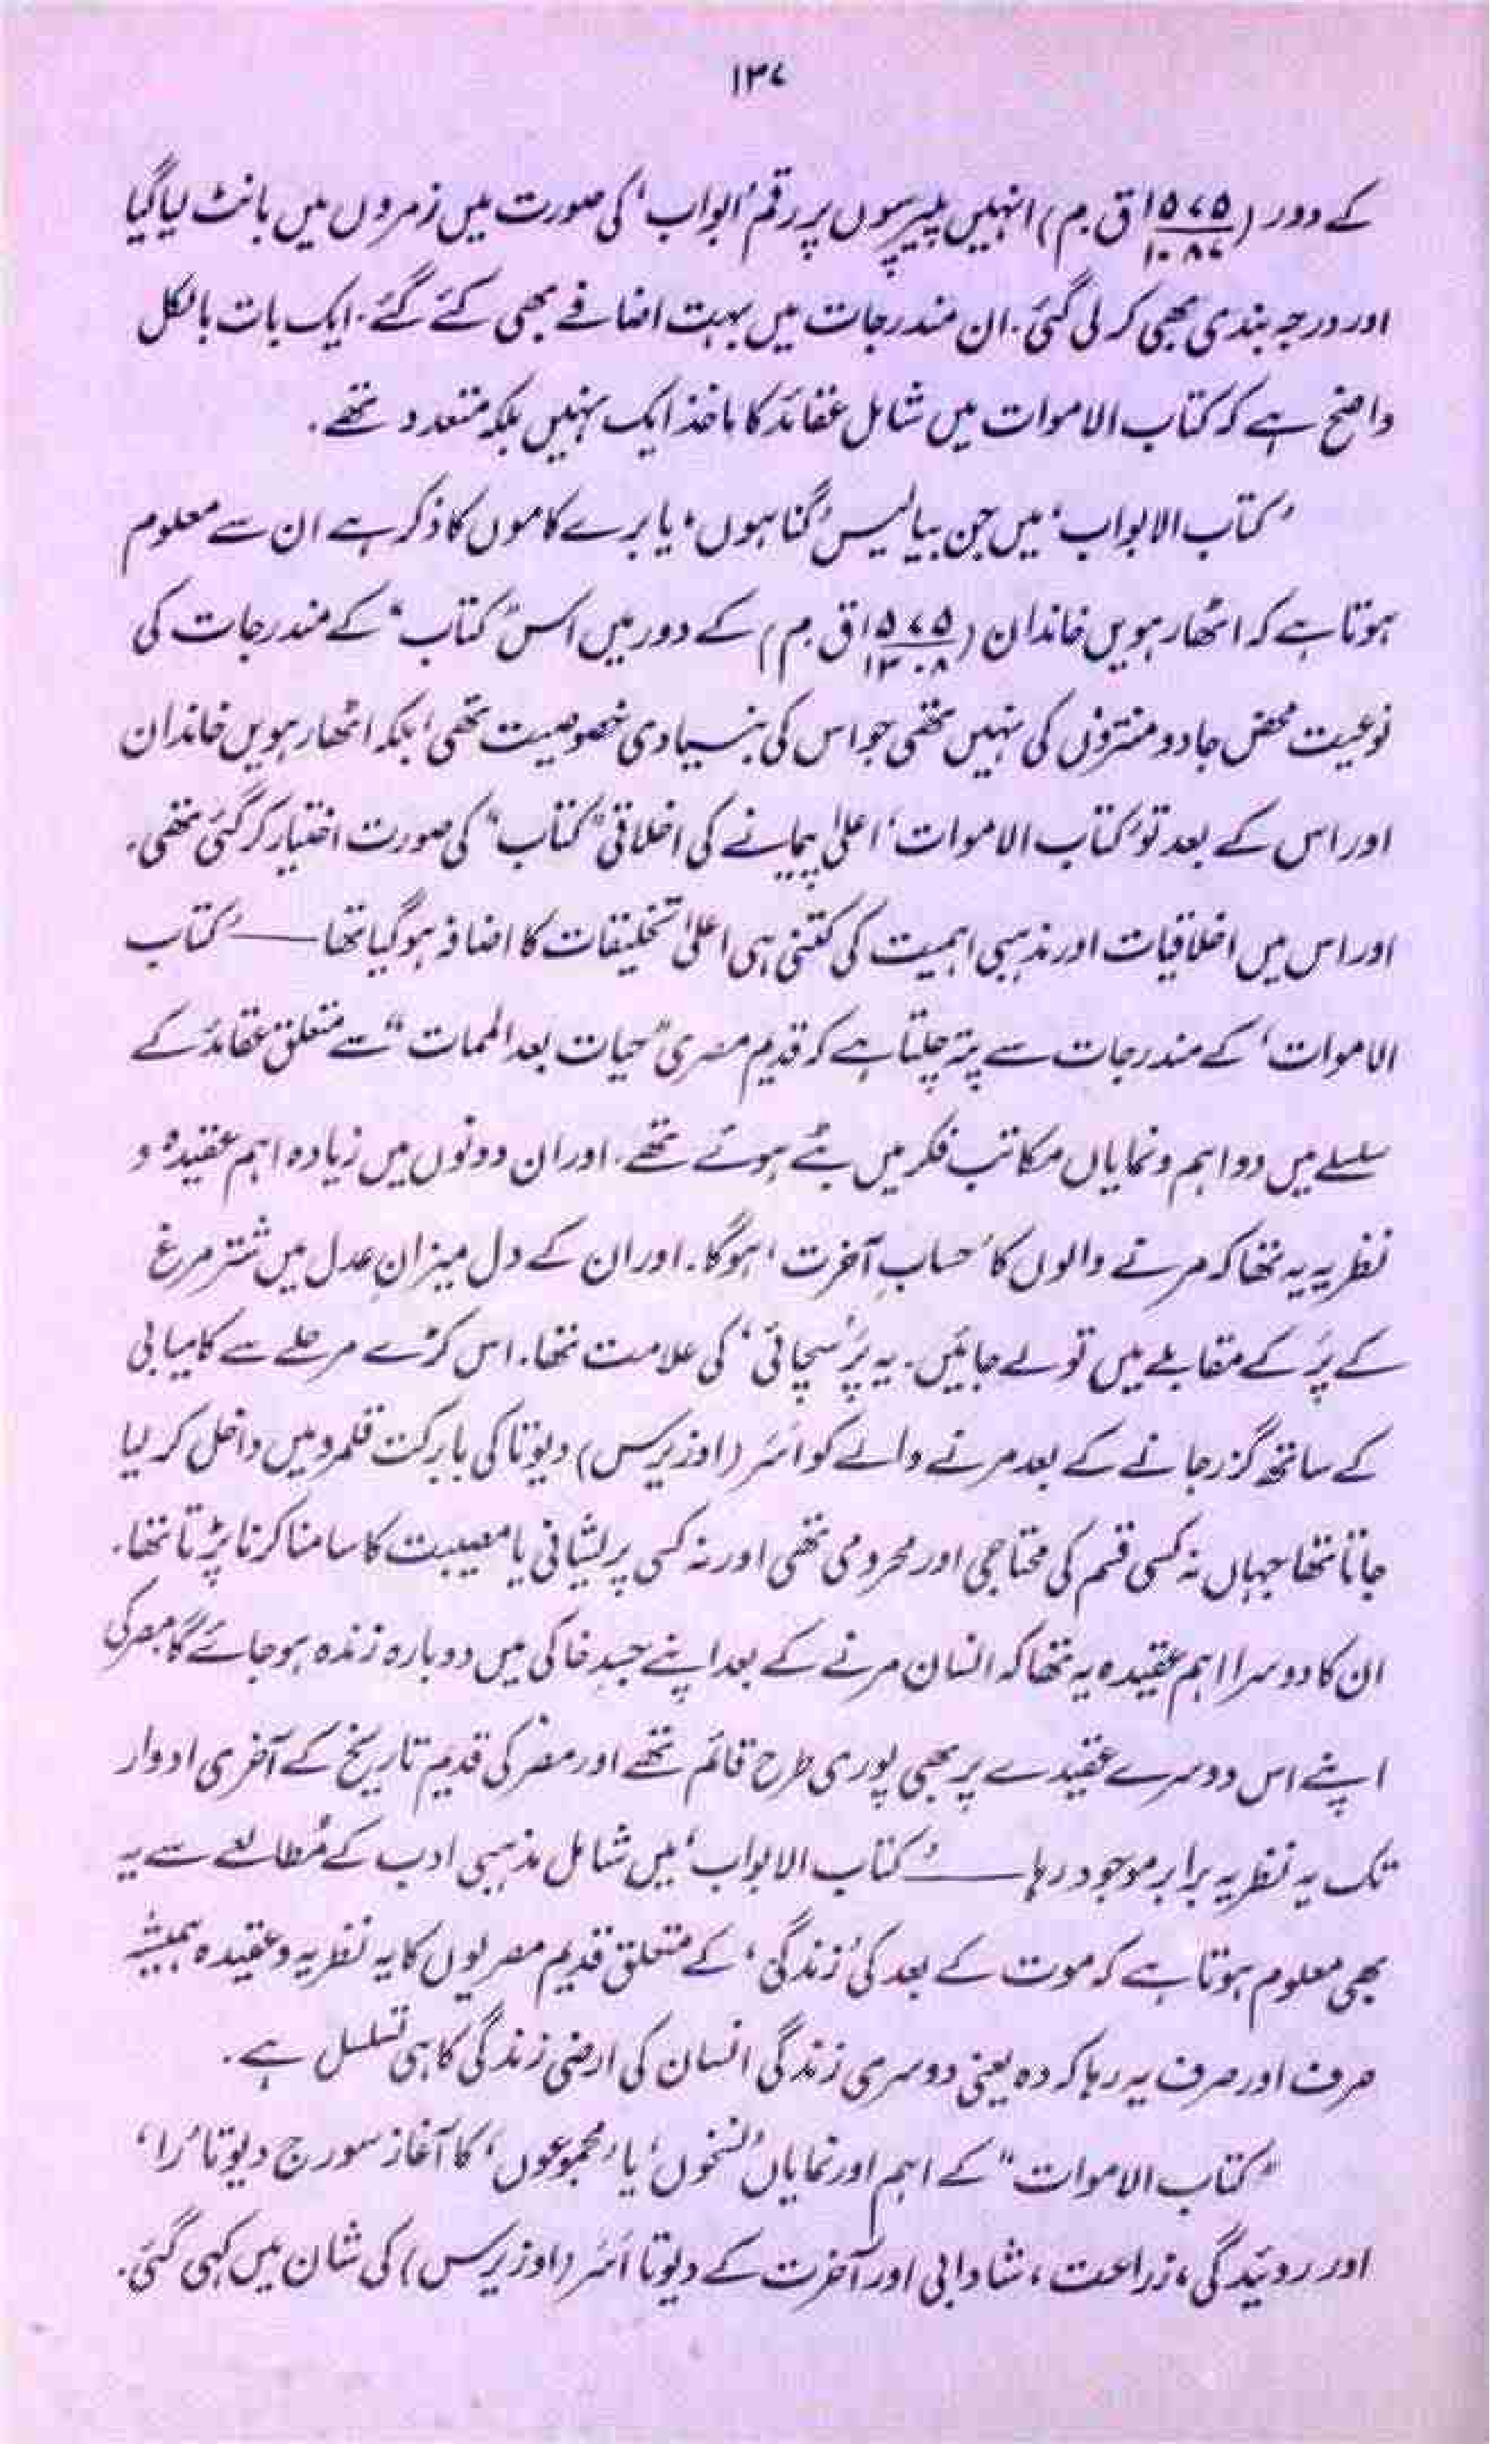 ۱۳۷
کے دور (۱۵۷۵/۱۰۸۷ ق م) انہیں پیپرسوں پر رقم ’ابواب‘ کی صورت میں زمروں میں بانٹ لیا گیا
اور درجہ بندی بھی کر لی گئی۔ ان مندرجات میں بہت اضافے بھی کئے گئے۔ ایک بات بالکل
واضح ہے کہ کتاب الاموات میں شامل عقائد کا ماخذ ایک نہیں بلکہ متعدد تھے۔
’کتاب الابواب‘ میں جن بیالیس ’گناہوں‘ یا برے کاموں کا ذکر ہے ان سے معلوم
ہوتا ہے کہ اٹھارہویں خاندان (۱۵۷۵/۱۳۰۸ ق م) کے دور میں اس ”کتاب“ کے مندرجات کی
نوعیت محض جادو منتروں کی نہیں تھی جو اس کی بنیادی خصوصیت تھی بلکہ اٹھارہویں خاندان
اور اس کے بعد تو ’کتاب الاموات‘ اعلیٰ پیمانے کی اخلاقی ”کتاب“ کی صورت اختیار کر گئی تھی۔
اور اس میں اخلاقیات اور مذہبی اہمیت کی کتنی ہی اعلیٰ تخلیقات کا اضافہ ہو گیا تھا —— ’کتاب
الاموات‘ کے مندرجات سے پتہ چلتا ہے کہ قدیم مصری ”حیات بعد الممات“ سے متعلق عقائد کے
سلسلے میں دو اہم و نمایاں مکاتب فکر میں بٹے ہوئے تھے۔ اور ان دونوں میں زیادہ اہم عقیدہ و
نظریہ یہ تھا کہ مرنے والوں کا ’حساب آخرت‘ ہوگا۔ اور ان کے دل میزانِ عدل میں شتر مرغ
کے پَر کے مقابلے میں تولے جائیں۔ یہ پَر ’سچائی‘ کی علامت تھا۔ اس کڑے مرحلے سے کامیابی
کے ساتھ گزر جانے کے بعد مرنے والے کو اُسَر (اوزیرس) دیوتا کی بابرکت قلمرو میں داخل کر لیا
جاتا تھا جہاں نہ کسی قسم کی محتاجی اور محرومی تھی اور نہ کسی پریشانی یا مصیبت کا سامنا کرنا پڑتا تھا۔
ان کا دوسرا اہم عقیدہ یہ تھا کہ انسان مرنے کے بعد اپنے جسدِ خاکی میں دوبارہ زندہ ہو جائے گا مصر کی
اپنے اس دوسرے عقیدے پر بھی پوری طرح قائم تھے اور مصر کی قدیم تاریخ کے آخری ادوار
تک یہ نظریہ برابر موجود رہا —— ’کتاب الابواب‘ میں شامل مذہبی ادب کے مُطالعے سے یہ
بھی معلوم ہوتا ہے کہ موت کے بعد کی ’زندگی‘ کے متعلق قدیم مصریوں کا یہ نظریہ و عقیدہ ہمیشہ
صرف اور صرف یہ رہا کہ وہ یعنی دوسری زندگی انسان کی ارضی زندگی کا ہی تسلسل ہے۔
”کتاب الاموات“ کے اہم اور نمایاں ’نسخوں‘ یا ’مجموعوں‘ کا آغاز سورج دیوتا ’را‘
اور روئیدگی، زراعت، شادابی اور آخرت کے دیوتا اُسَر (اوزیرس) کی شان میں کہی گئی۔